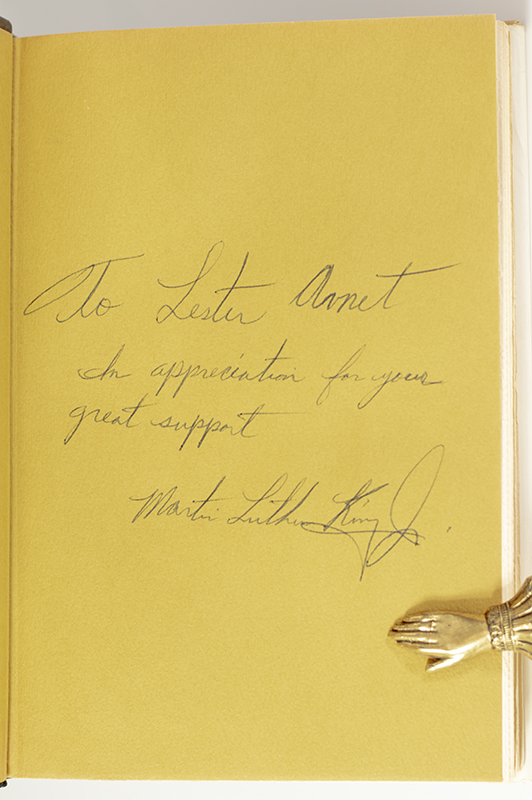 To Lester Avnet
In appreciation for your
great support
Martin Luther King Jr.